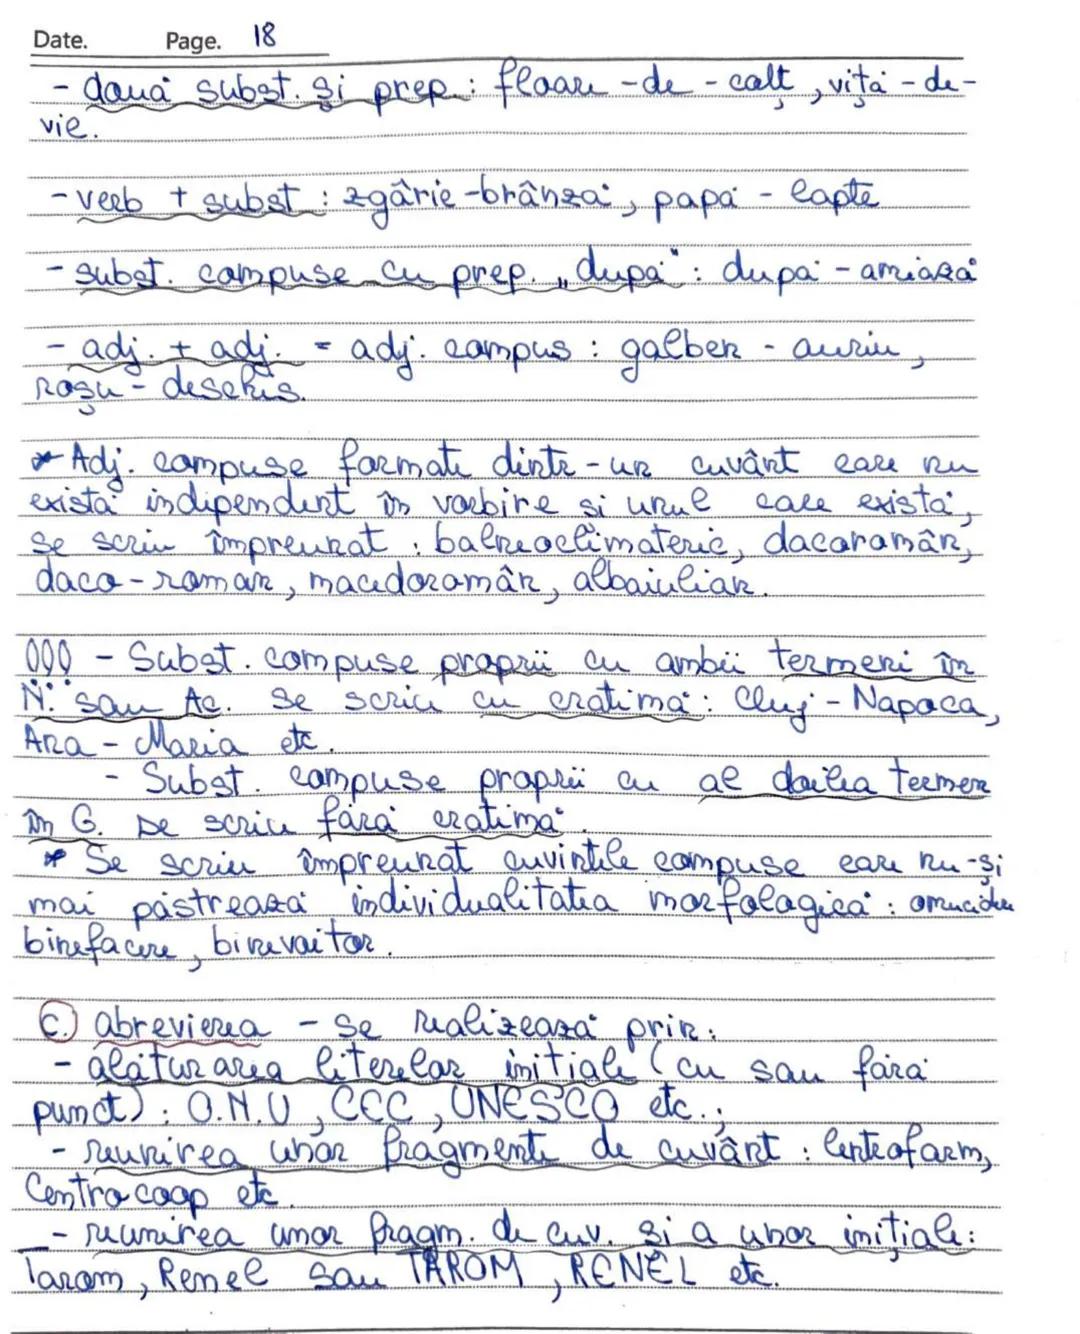 Date. Page. 18
- două subst. și prep.: floare-de-colț, viță-de-
vie.
- verb + subst: zgârie-brânză, papă-lapte
- subst. compuse cu prep. „după": după-amiază
- adj. + adj. = adj. compus: galben-auriu,
roșu-deschis.
* Adj. compuse formate dintr-un cuvânt care nu
există indipendent în vorbire si unul care există,
se scriu împreunat: balneoclimateric, dacoromân,
daco-roman, macedoromân, albaiulian.
- Subst. compuse proprii cu ambii termeni în
N. sau Ac. se scriu cu cratimă: Cluj-Napoca,
Ana-Maria etc.
- Subst. compuse proprii cu al doilea termen
în G. se scriu fără cratimă.
* Se scriu împreunat cuvintele compuse care nu-și
mai păstrează individualitatea morfologică: omucidere
binefacere, binevoitor.
c.) abrevierea - se realizează prin:
- alăturarea literelor inițiale (cu sau fără
punct): O.N.U, CEC, UNESCO etc.;
- reunirea unor fragmente de cuvânt: Centrofarm,
Centrocoop etc.
- reunirea unor fragm. de cuv. și a unor inițiale:
Tarom, Renel sau TAROM, RENEL etc.